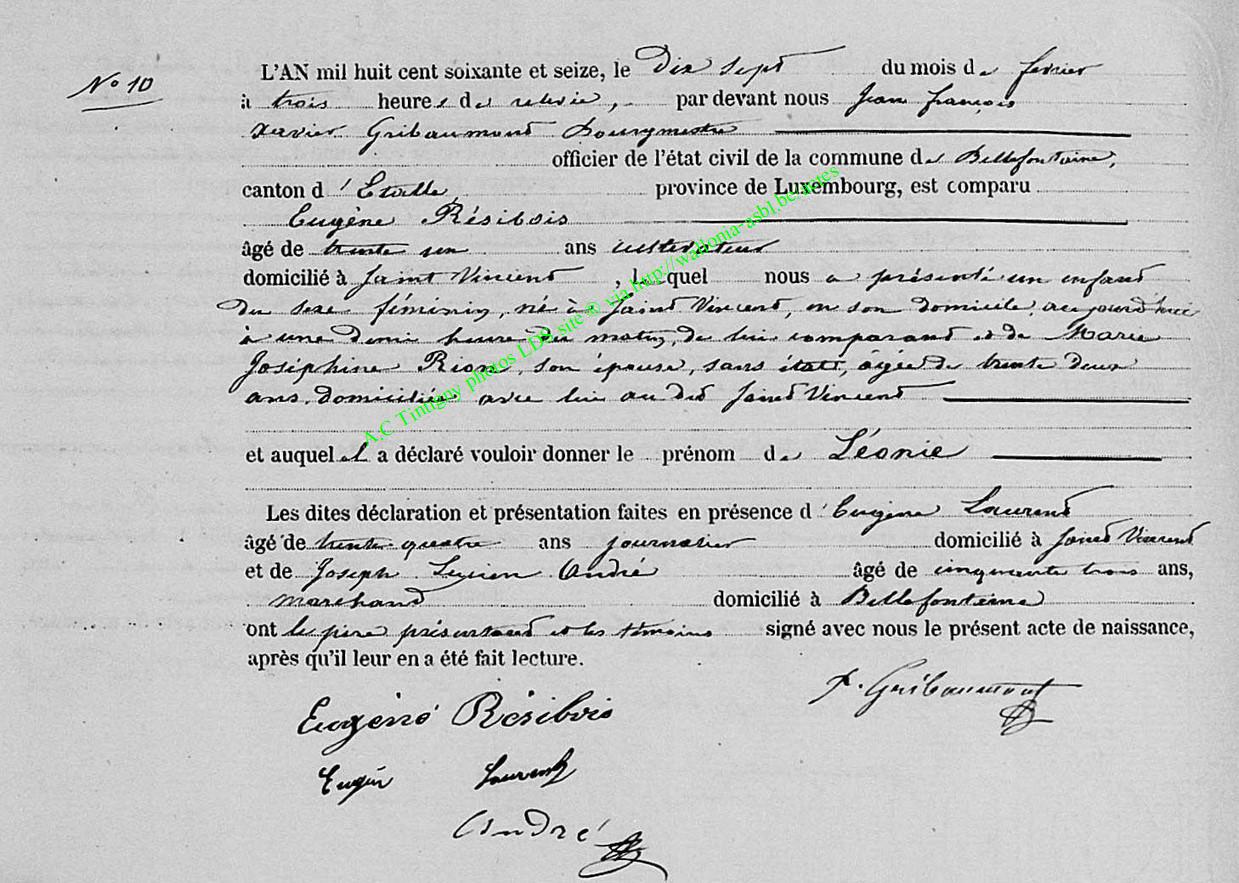 No 10
L'AN mil huit cent soixante et seize, le Dix sept du mois de fevrier
à trois heures de relevée, par devant nous Jean françois
Xavier Gribaumont Bourgmestre
officier de l'état civil de la commune de Bellefontaine,
canton d'Etalle, province de Luxembourg, est comparu
Eugène Résibois
âgé de trente un ans cultivateur
domicilié à Saint Vincent, lequel nous a présenté un enfant
du sexe féminin, né à Saint Vincent, en son domicile, aujourd'hui
à une demi heure du matin, de lui comparant et de Marie
Joséphine Rion, son épouse, sans état, âgée de trente deux
ans, domiciliée avec lui au dit Saint Vincent
et auquel il a déclaré vouloir donner le prénom de Léonie
Les dites déclaration et présentation faites en présence d'Eugène Laurent
âgé de trente quatre ans journalier domicilié à Saint Vincent
et de Joseph Lucien André âgé de cinquante trois ans,
marchand domicilié à Bellefontaine
ont le père présentant et les témoins signé avec nous le présent acte de naissance,
après qu'il leur en a été fait lecture.
X. Gribaumont
Eugène Résibois
Eugène Laurent
André
A.C Tintigny photos LDS site © via http://walloma-asbl.be/actes